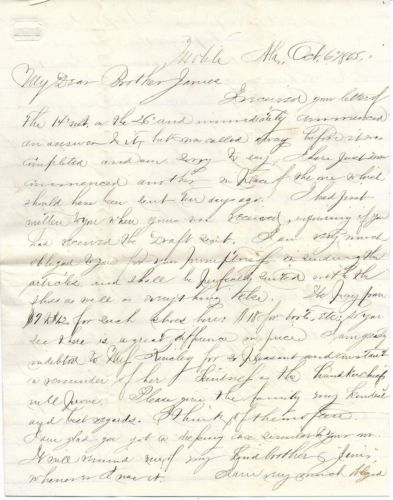 Mobile Ala, Oct. 6 1865.
My Dear Brother James
I received your letter of
the 14" inst. on the 26" and immediately commenced
an answer to it, but was called away before it was
completed and am sorry to say, I have just now
commenced another in place of the one which
should have been sent ten days ago. I had just
written to you when yours was received, inquiring if you
had received the Draft sent. I am very much
obliged to you for your promptness in sending the
articles, and shall be perfectly suited with the
shoes as well as everything else. We pay from
for such shoes here; $18 for boots, etc; so you
see there is a great difference in price. I am greatly
indebted to Mrs. for so pleasant and constant
a reminder of her kindness as the handkerchiefs
will prove. Please give the family my kindest
and best regards. I think of them often.
I am glad you got a dressing case similar to your own.
It will remind me of my good brother Jamie,
whenever I use it. I am very much obliged